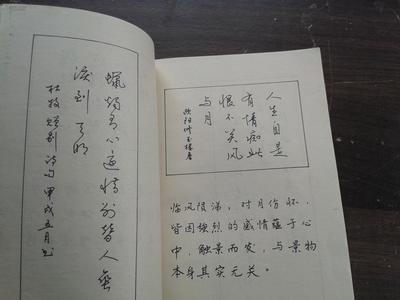 蜡烛有心还惜别替人垂
泪到天明
杜牧赠别诗句甲戌五月书
人生自是
有情痴此
恨不关风
与月
欧阳修玉楼春
临风陨涕，对月伤怀，
皆因强烈的感情蕴于心
中，触景而发，与景物
本身其实无关。